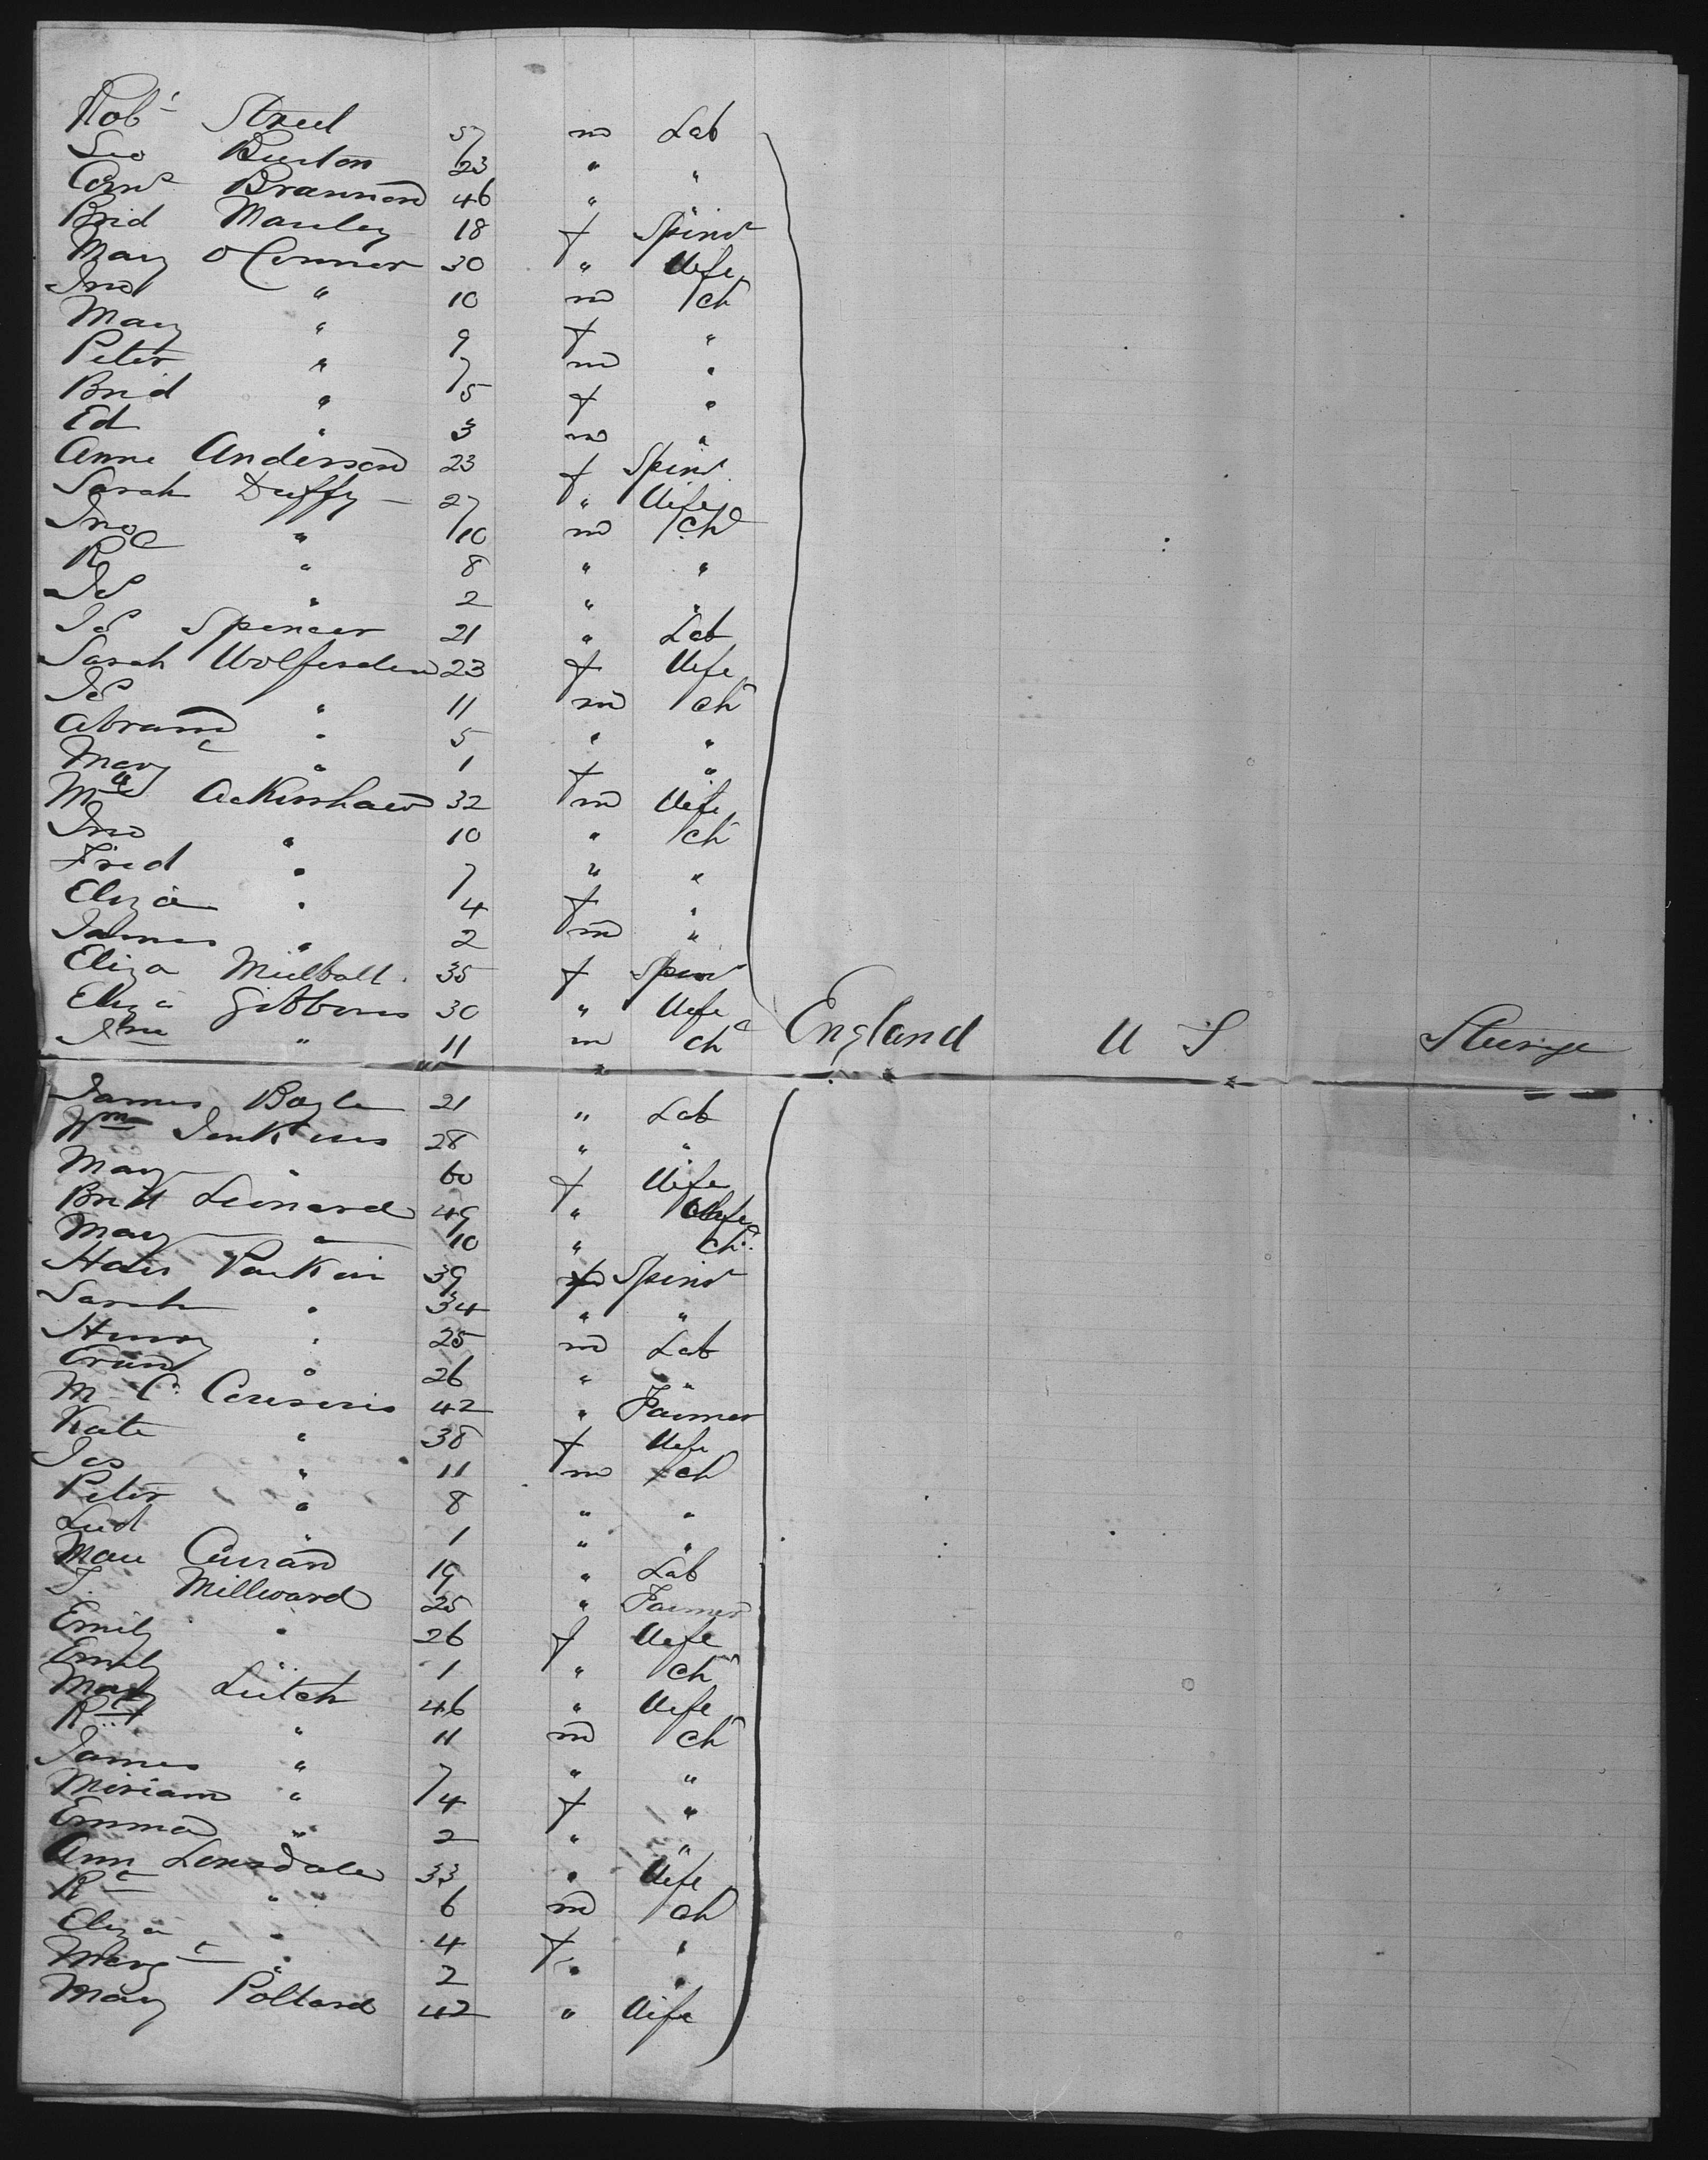 Robt Street 57 m Lab
Geo Burton 23 " "
Corns Brannon 46 " "
Brid Manley 18 f Spinr
Mary O Connor 30 " Wife
Jno " 10 m Ch
Mary " 9 f "
Peter " 7 m "
Brid " 5 f "
Ed " 3 m "
Anne Anderson 23 f Spinr
Sarah Duffy 27 " Wife
Jno " 10 m Chd
" 8 " "
Js " 2 " "
Js Spencer 21 " Lab
Sarah Wolfenden 23 f Wife
Js " 11 m Ch
Abram " 5 " "
Mary " 1 f "
32 m Wife
Jno " 10 " Ch
Fred " 7 " "
Eliza " 4 f "
James " 2 m "
Eliza 35 f Spinr
Eliza Gibbons 30 " Wife
" 11 m Ch England U S Steerage
James Boyle 21 " Lab
Wm Jenkins 28 " "
Mary " 60 f Wife
Leonard 49 " Wife
Mary " 10 " Ch
Parkin 39 f Spinr
Sarah " 34 " "
Henry " 25 m Lab
" 26 " "
M C Cousins 42 " Farmer
Kate " 38 f Wife
Jas " 11 m Ch
Peter " 8 " "
" 1 " "
Curran 19 " Lab
J. Millward 25 " Farmer
Emily " 26 f Wife
Emily " 1 " Ch
Mary Leitch 46 " Wife
Rt " 11 m Ch
James " 7 " "
Miriam " 4 f "
Emma " 2 " "
Ann Lonsdale 33 " Wife
Rt " 6 m Ch
Eliza " 4 f "
Margt " 2 " "
Mary Pollard 42 " Wife